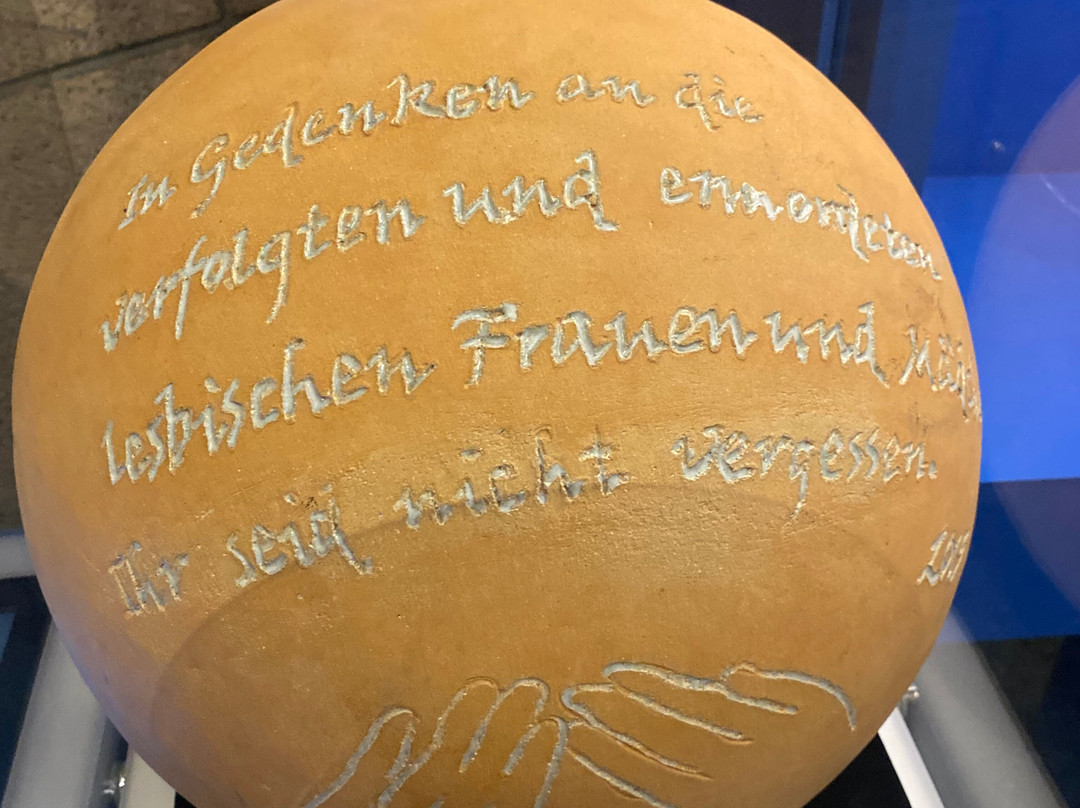 In Gedenken an die
verfolgten und ermordeten
lesbischen Frauen und
Ihr seid nicht vergessen.